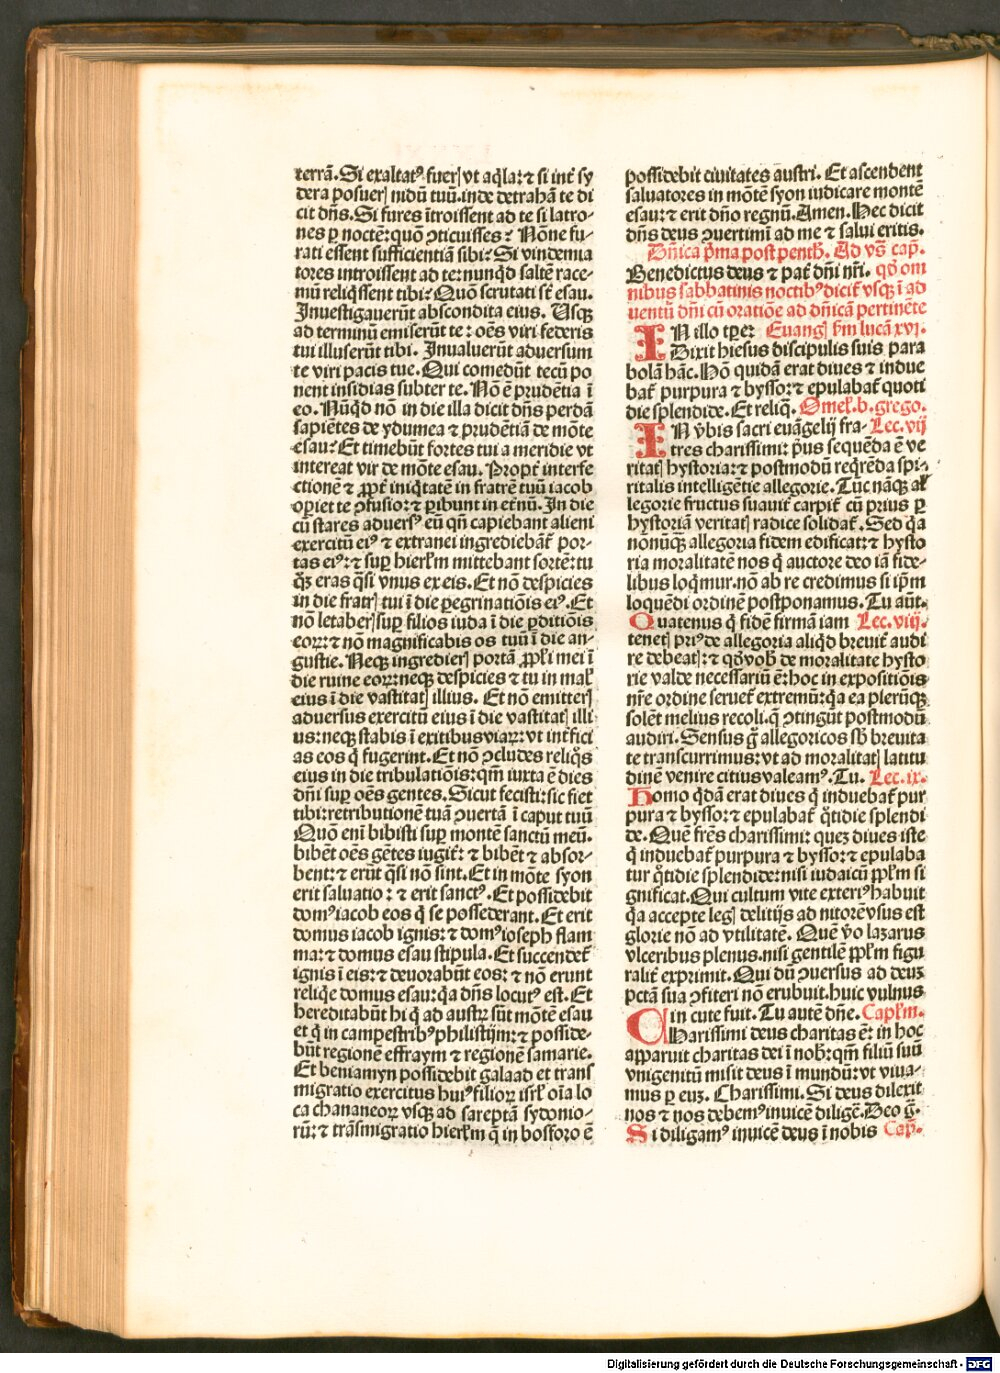 terrā. Si exaltatꝰ fuerꝭ vt aq̇la: ⁊ si int̄ sy
dera posuerꝭ nidū tuū. inde detrahā te di
cit dn̄s. Si fures ītroissent ad te si latro-
nes ꝑ noctē: quō ꝯticuisses? Nōne fu-
rati essent sufficientiā sibi? Si vindemia
tores introissent ad te: nunq̇d saltē race-
mū reliq̇ssent tibi? Quō scrutati st̄ esau.
Inuestigauerūt abscondita eius. Usqꝫ
ad terminū emiserūt te: oēs viri federis
tui illuserūt tibi. Inualuerūt aduersum
te viri pacis tue. Qui comedūt tecū po
nent insidias subter te. Nō ē prudētia ī
eo. Nūq̇d nō in die illa dicit dn̄s perdā
sapiētes de ydumea ⁊ prudētiā de mōte
esau? Et timebūt fortes tui a meridie vt
intereat vir de mōte esau. Propt̄ interfe
ctionē ⁊ ꝓpt̄ iniq̇tatē in fratrē tuū iacob
opiet te ꝯfusio: ⁊ ꝑibunt in et̄nū. In die
cū stares aduersꝰ eū qn̄ capiebant alieni
exercitū eiꝰ ⁊ extranei ingrediebāt̄ por-
tas eiꝰ: ⁊ suꝑ hierlm̄ mittebant sortē: tu
q̊ꝫ eras q̇si vnus ex eis. Et nō despicies
in die fratrꝭ tui ī die ꝑegrinatiōis eiꝰ. Et
nō letaberꝭ suꝑ filios iuda ī die ꝑditiōis
eoꝝ: ⁊ nō magnificabis os tuū ī die an-
gustie. Neqꝫ ingredierꝭ portā ꝓpl̄i mei ī
die ruine eoꝝ: neqꝫ despicies ⁊ tu in mal̄
eius ī die vastitatꝭ illius. Et nō emitterꝭ
aduersus exercitū eius ī die vastitatꝭ illi
us: neqꝫ stabis ī exitibus viaꝝ: vt int̄fici
as eos q̇ fugerint. Et nō ꝯcludes reliq̇s
eius in die tribulatiōis: qm̄ iuxta ē dies
dn̄i suꝑ oēs gentes. Sicut fecisti: sic fiet
tibi: retributionē tuā ꝯuertā ī caput tuū
Quō eni bibisti suꝑ montē sanctū meū.
bibēt oēs gētes iugit̄: ⁊ bibēt ⁊ absor-
bent: ⁊ erūt q̇si nō sint. Et in mōte syon
erit saluatio: ⁊ erit sanctꝰ. Et possidebit
domꝰ iacob eos q̇ se possederant. Et erit
domus iacob ignis: ⁊ domꝰ ioseph flam
ma: ⁊ domus esau stipula. Et succendet̄
ignis ī eis: ⁊ deuorabūt eos: ⁊ nō erunt
reliq̇e domus esau: q̇a dn̄s locutꝰ est. Et
hereditabūt hi q̇ ad austꝝ sūt mōtē esau
et q̇ in campestribꝰ philistijm: ⁊ posside-
būt regionē effraym ⁊ regionē samarie.
Et beniamyn possidebit galaad et trans
migratio exercitus huiꝰ filioꝝ isrl̄ oīa lo
ca chananeoꝝ vsqꝫ ad sareptā sydonio-
rū: ⁊ trāsmigratio hierlm̄ q̇ in bosforo ē
possidebit ciuitates austri. Et ascendent
saluatores in mōtē syon iudicare montē
esau: ⁊ erit dn̄o regnū. Amen. Hec dicit
dn̄s deus ꝯuertimī ad me ⁊ salui eritis.
Dn̄ica p̄ma post penth̄. Ad vs̄ cap̄.
Benedictus deus ⁊ pat̄ dn̄i nr̄i. qd̓ om
nibus sabbatinis noctibꝰ dicit̄ vsqꝫ ī ad
uentū dn̄i cū oratiōe ad dn̄icā pertinēte
IN illo tp̄e: Euangꝭ ẜm lucā xvj.
Dixit hiesus discipulis suis para
bolā hāc. Hō quidā erat diues ⁊ indue
bat̄ purpura ⁊ bysso: ⁊ epulabat̄ quoti
die splendide. Et reliq̄. Omel̄. b. grego.
IN v̓bis sacri euāgelij fra- Lec. vij
tres charissimi: pͥus sequēda ē ve
ritatꝭ hystoria: ⁊ postmodū req̇rēda spi-
ritalis intelligētie allegorie. Tūc nāqꝫ al̄
legorie fructus suauit̄ carpit̄ cū prius ꝑ
hystoriā veritatꝭ radice solidat̄. Sed q̇a
nōnūqꝫ allegoria fidem edificat: ⁊ hysto
ria moralitatē nos q̇ auctore deo iā fide-
libus loq̇mur. nō ab re credimus si ip̄m
loquēdi ordinē postponamus. Tu aūt.
Quatenus q̇ fidē firmā iam Lec. viij.
tenetꝭ priꝰ de allegoria aliq̇d breuit̄ audi
re debeatꝭ: ⁊ qd̓ vob̄ de moralitate hysto
rie valde necessariū ē: hoc in expositiōis
nr̄e ordine seruet̄ extremū: q̇a ea plerūqꝫ
solēt melius recoli. q̄ ꝯtingūt postmodū
audiri. Sensus g̊ allegoricos sb̄ breuita
te transcurrimus: vt ad moralitatꝭ latitu
dinē venire citius valeamꝰ. Tu. Lec. ix.
Homo q̇dā erat diues q̇ induebat̄ pur
pura ⁊ bysso: ⁊ epulabat̄ q̊tidie splendi
de. Quē fr̄es charissimi: queꝫ diues iste
q̇ induebat̄ purpura ⁊ bysso: ⁊ epulaba
tur q̊tidie splendide: nisi iudaicū ppl̄m si
gnificat. Qui cultum vite exteriꝰ habuit
q̇a accepte legꝭ delitijs ad nitorē vsus est
glorie nō ad vtilitatē. Quē v̓o lazarus
vlceribus plenus. nisi gentilē ppl̄m figu
ralit̄ exprimit. Qui dū ꝯuersus ad deuꝫ
pctā sua ꝯfiteri nō erubuit. huic vulnus
in cute fuit. Tu autē dn̄e. Capl̄m.
Charissimi deus charitas ē: in hoc
apparuit charitas dei ī nob̄: qm̄ filiū suū
vnigenitū misit deus ī mundū: vt viua-
mus ꝑ euꝫ. Charissimi. Si deus dilexit
nos ⁊ nos debemꝰ inuicē diligē. Deo g̊.
Si diligamꝰ inuicē deus ī nobis Cap̄.
Digitalisierung gefördert durch die Deutsche Forschungsgemeinschaft - DFG